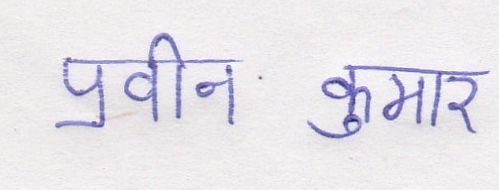 प्रवीन कुमार